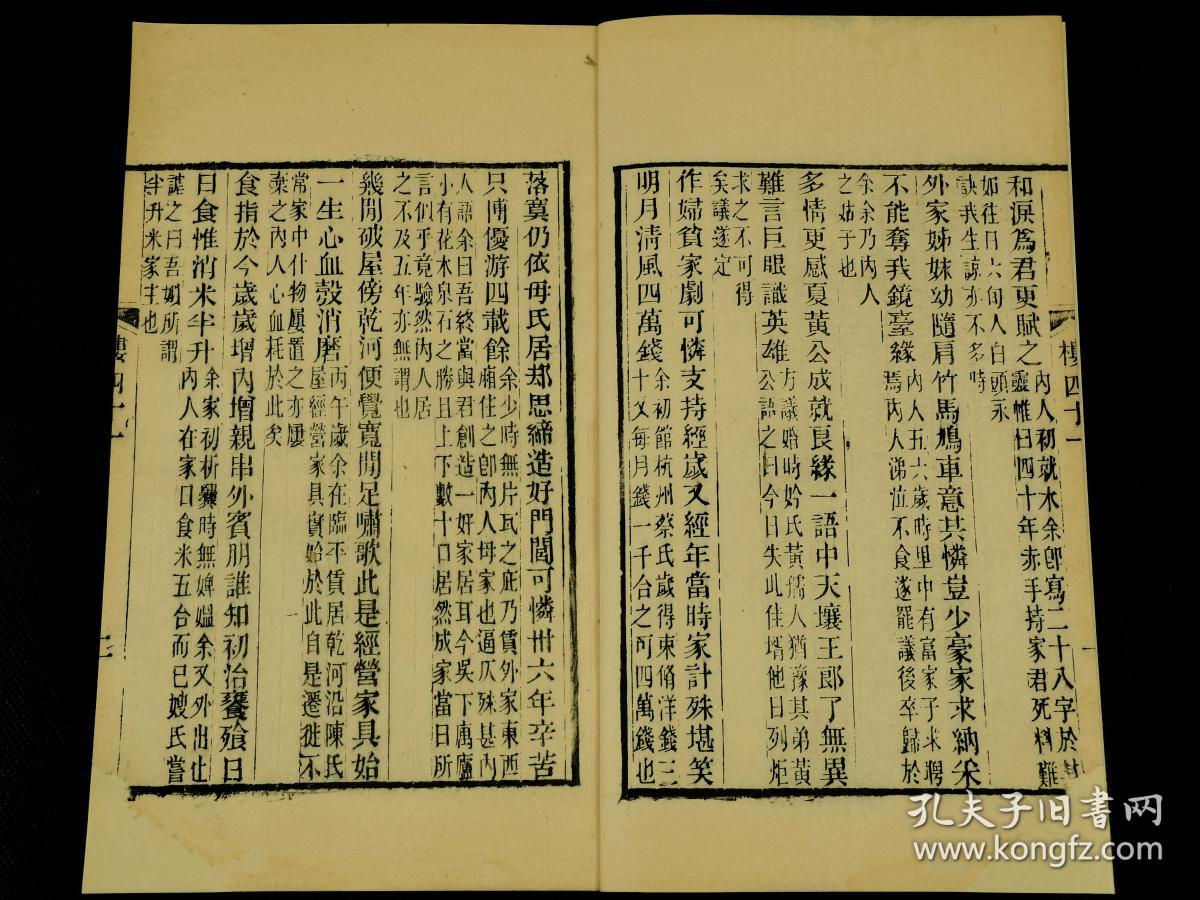 樓四十一
和淚爲君更賦之
內人初就木余卽寫二十八字於
靈帷曰四十年赤手持家君死料難
如往日六旬人白頭永
訣我生諒亦不多時
外家姊妹幼隨肩竹馬鳩車意共憐豈少豪家求納采
不能奪我鏡臺緣
內人五六歲時里中有富家子求聘
焉內人涕泣不食遂罷議後卒歸於
余余乃內人
之姑子也
多情更感夏黃公成就良緣一語中天壤王郎了無異
難言巨眼識英雄
方議婚時妗氏黃孺人猶豫其弟黃
公語之曰今日失此佳壻他日列炬
求之不可得
矣議遂定
作婦貧家劇可憐支持經歲又經年當時家計殊堪笑
明月清風四萬錢
余初館杭州蔡氏歲得東脩洋錢三
十又每月錢一千合之可四萬錢也
落寞仍依母氏居却思締造好門閭可憐卅六年辛苦
只博優游四載餘
余少時無片瓦之庇乃賃外家東西
廂住之卽內人母家也逼仄殊甚內
人語余曰吾終當與君創造一好家居耳今吳下寓廬
小有花木泉石之勝且上下數十口居然成家當日所
言似乎竟驗然內人居
之不及五年亦無謂也
幾閒破屋傍乾河便覺寬閒足嘯歌此是經營家具始
一生心血彀消磨
丙午歲余在臨平賃居乾河沿陳氏
屋經營家具實始於此自是遷徙不
常家中什物屢置之亦屢
棄之內人心血耗於此矣
食指於今歲歲增內增親串外賓朋誰知初治饔飧日
日食惟消米半升
余家初析爨時無婢媼余又外出止
內人在家日食米五合而已嫂氏嘗
謔之曰吾娣所謂
半升米家主也
樓四十一
孔夫子旧书网
www.kongfz.com